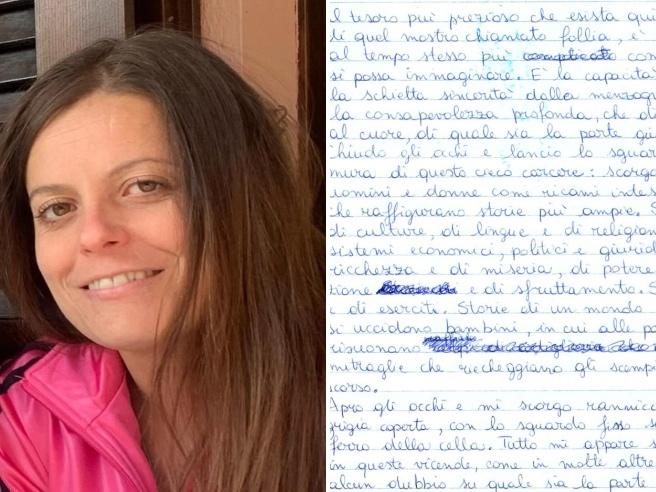 l tesoro più prezioso che esista qui
di quel mostro chiamato follia, è
al tempo stesso più complicato con
si possa immaginare. È la capacità
la schietta sincerità dalla menzogn
la consapevolezza profonda, che d
al cuore, di quale sia la parte giu
chiudo gli occhi e lancio lo sguar
mura di questo cieco carcere: scorgo
uomini e donne come ricami intes
che raffigurano storie più ampie. S
di culture, di lingue e di religion
sistemi economici, politici e giurid
ricchezza e di miseria, di potere
zione e di sfruttamento. S
e di eserciti. Storie di un mondo
si uccidono bambini, in cui alle pa
risuonano
mitraglie che riecheggiano gli scempi
scorso.
Apro gli occhi e mi scorgo rannicc
grigia coperta, con lo sguardo fisso s
ferro della cella. Tutto mi appare s
in queste vicende, come in molte altre
alcun dubbio su quale sia la parte